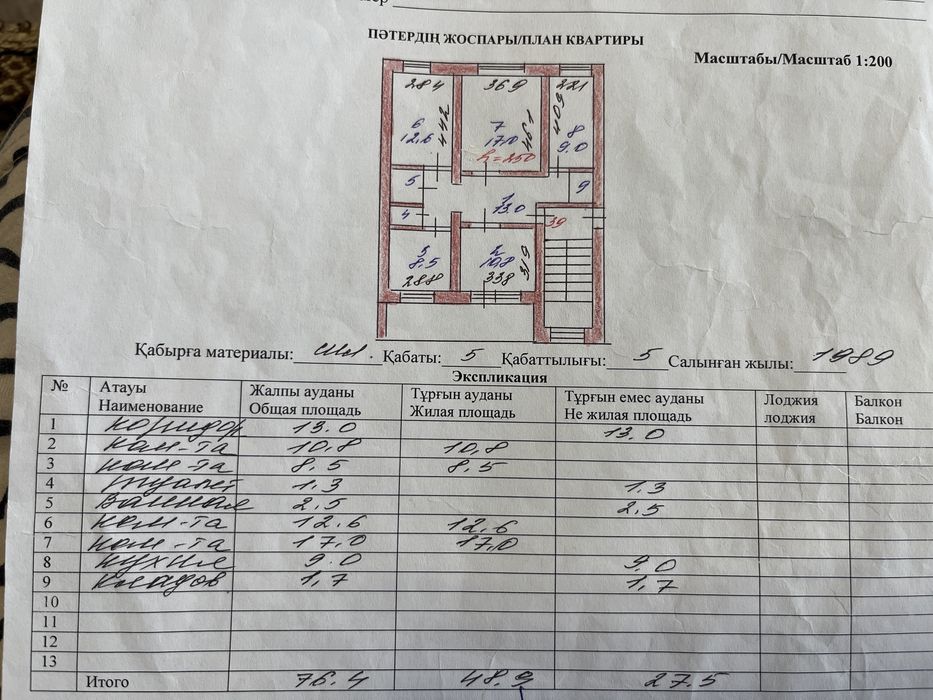 ПӘТЕРДІҢ ЖОСПАРЫ/ПЛАН КВАРТИРЫ
Масштабы/Масштаб 1:200
284 369 221
442 461 409
6 7 8
12,6 17,0 9.0
h=250
5 1 9
4 13.0 39
3 2
8,5 10,8 319
288 338
Қабырға материалы: шл. Қабаты: 5 Қабаттылығы: 5 Салынған жылы: 1989
Экспликация
№ Атауы Жалпы ауданы Тұрғын ауданы Тұрғын емес ауданы Лоджия Балкон
Наименование Общая площадь Жилая площадь Не жилая площадь лоджия Балкон
1 коридор 13.0 13.0
2 ком-та 10,8 10,8
3 ком-та 8.5 8.5
4 туалет 1.3 1.3
5 ванная 2.5 2.5
6 ком-та 12.6 12.6
7 ком-та 17,0 17,0
8 кухня 9.0 9.0
9 кладов. 1,7 1,7
10
11
12
13
Итого 76.4 48.9 27.5